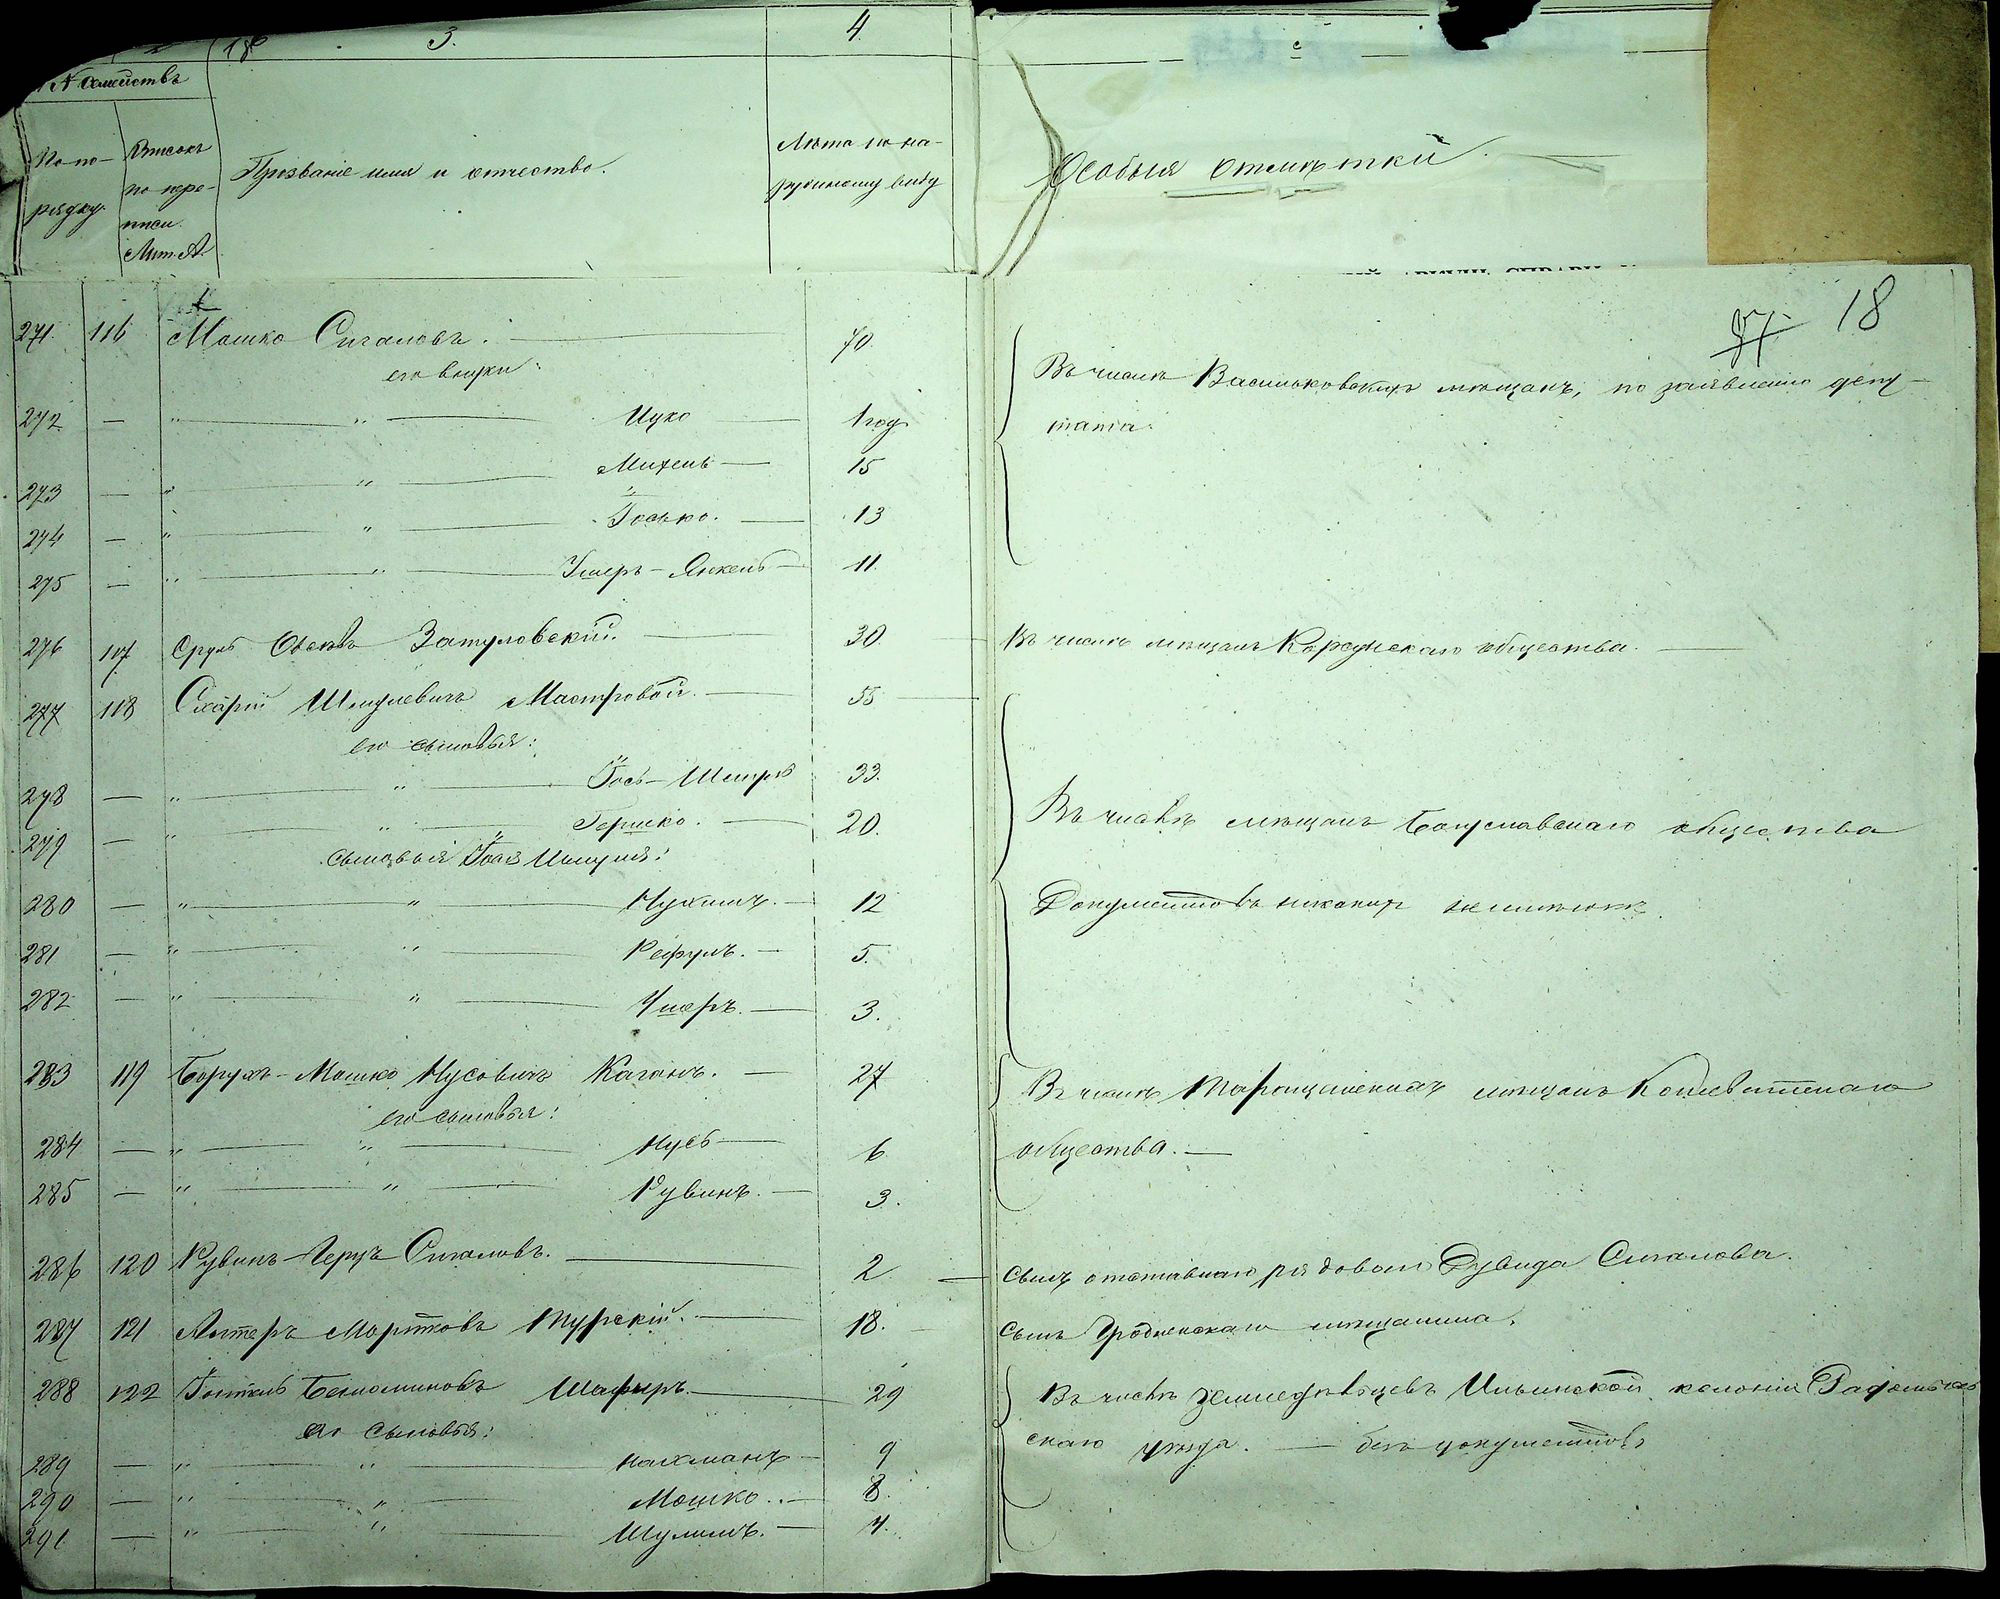 3. 4
№ Семействъ
По по-
рядку.
Въ спискѣ
по пере-
писи
Лит. А.
Прозваніе имя и отчество.
Лѣта по на-
ружному виду
Особыя отмѣтки
18
271. 116 Мошко Сигаловъ. 70.
его внуки:
Въ числѣ Васильковскихъ мѣщанъ, по заявленію депу-
тата.
272 — " " Ицко 1 год
273 — " " Михель — 15
274 — " " Іосько. 13
275 — " " Ушеръ-Янкель 11.
276 117 Сруль Осіовъ Затуловскій. 30. Въ числѣ мѣщанъ Корсунскаго общества.
277 118 Схарій Шмулевичъ Мастровой. 55
его сыновья:
278 — " " Іось-Шмуль 33.
279 — " " Гершко. 20.
Въ числѣ мѣщанъ Богуславскаго общества
сыновья Іося Шмуля:
280 — " " Нухимъ. 12
Документовъ никакихъ не имѣютъ.
281 — " " Рефулъ. 5.
282 — " " Ушеръ. 3.
283 119 Борухъ-Мошко Нусовичъ Каганъ. 27
Въ числѣ Таращанскихъ мѣщанъ Кошеватскаго
его сыновья:
284 — " " Нусь 6
общества.
285 — " " Рувинъ. 3.
286 120 Рувинъ-Герцъ Сигаловъ. 2 — сынъ отставнаго рядоваго Дувида Сигалова.
287 121 Алтеръ Мортковъ Турскій. 18. сынъ Гродненскаго мѣщанина.
288 122 Іоитель Беніоминовъ Шафиръ. 29 Въ числѣ земледѣльцевъ Ильинской колоніи Радомысль-
его сыновья:
скаго уѣзда. — безъ документовъ
289 — " " Нахманъ 9
290 — " " Мошко. 8.
291 — " " Шулимъ. 4.